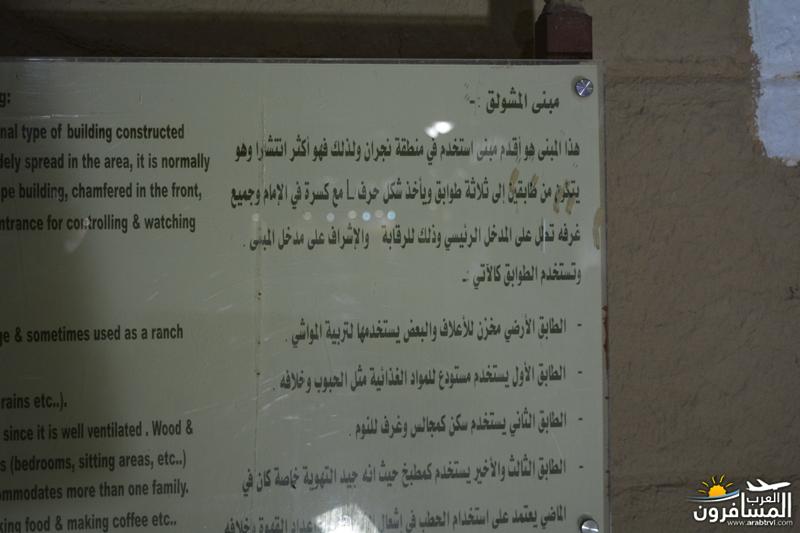 مبنى المشولق :-
هذا المبنى هو أقدم مبنى استخدم في منطقة نجران ولذلك فهو أكثر انتشارا وهو
يتكون من طابقين إلى ثلاثة طوابق ويأخذ شكل حرف L مع كسرة في الإمام وجميع
غرفه تطل على المدخل الرئيسي وذلك للرقابة والإشراف على مدخل المبنى .
وتستخدم الطوابق كالآتي :-
- الطابق الأرضي مخزن للأعلاف والبعض يستخدمها لتربية المواشي .
- الطابق الأول يستخدم مستودع للمواد الغذائية مثل الحبوب وخلافه .
- الطابق الثاني يستخدم سكن كمجالس وغرف للنوم .
- الطابق الثالث والأخير يستخدم كمطبخ حيث انه جيد التهوية خاصة كان في
الماضي يعتمد على استخدام الحطب في إشعال القهوة وخلافه
g:
nal type of building constructed
dely spread in the area, it is normally
pe building, chamfered in the front,
ntrance for controlling & watching
ge & sometimes used as a ranch
rains etc..).
since it is well ventilated . Wood &
s (bedrooms, sitting areas, etc..)
ommodates more than one family.
king food & making coffee etc..
العرب
المسافرون
www.arabtrvl.com